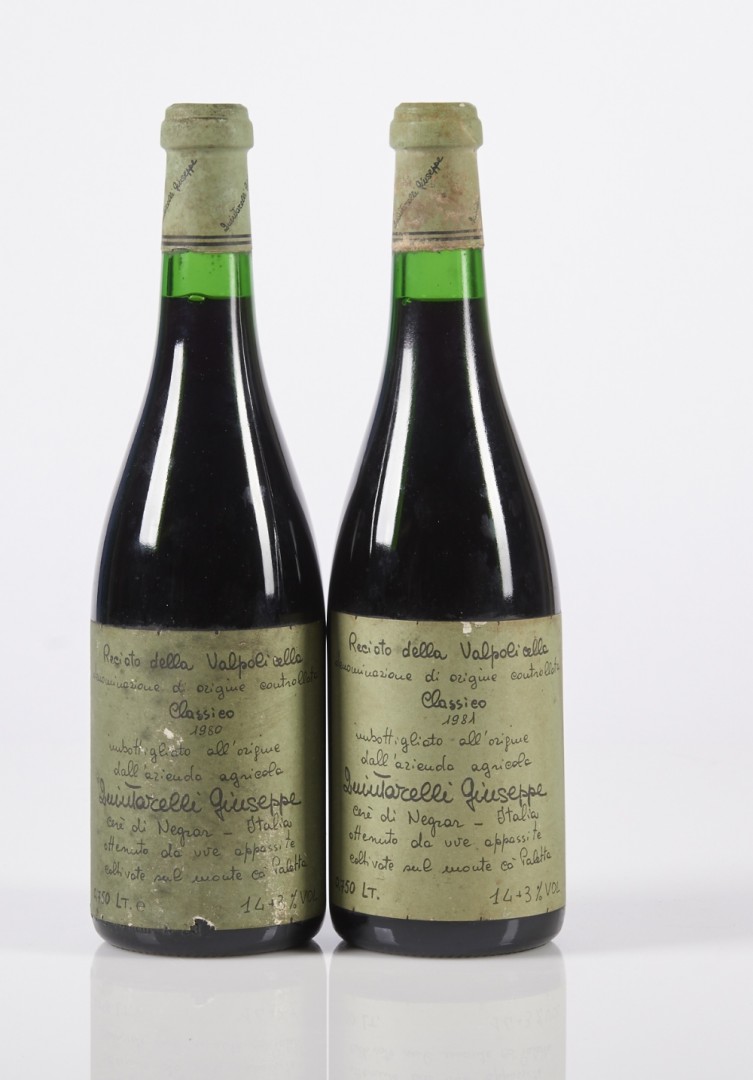 Quintarelli Giuseppe
Recioto della Valpolicella
denominazione di origine controllata
Classico
1980
imbottigliato all'origine
dall'azienda agricola
Quintarelli Giuseppe
cerè di Negrar - Italia
ottenuto da uve appassite
coltivate sul monte ca' Paletta
0,750 LT. e 14+3% VOL
Quintarelli Giuseppe
Recioto della Valpolicella
denominazione di origine controllata
Classico
1981
imbottigliato all'origine
dall'azienda agricola
Quintarelli Giuseppe
cerè di Negrar - Italia
ottenuto da uve appassite
coltivate sul monte ca' Paletta
0,750 LT. 14+3% VOL